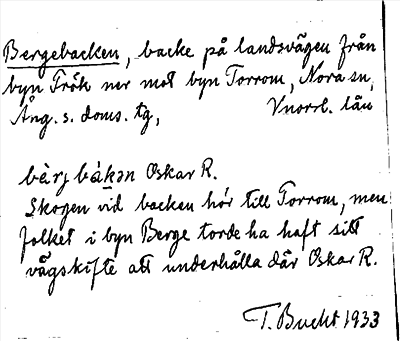 Bergebacken, backe på landsvägen från
byn Frök ner mot byn Torrom, Nora sn,
Ång. s. doms. tg, Vnorrl. län
bàrj bákən Oskar R.
Skogen vid backen hör till Torrom, men
folket i byn Berge torde ha haft sitt
vägskifte att underhålla där Oskar R.
T. Bucht 1933